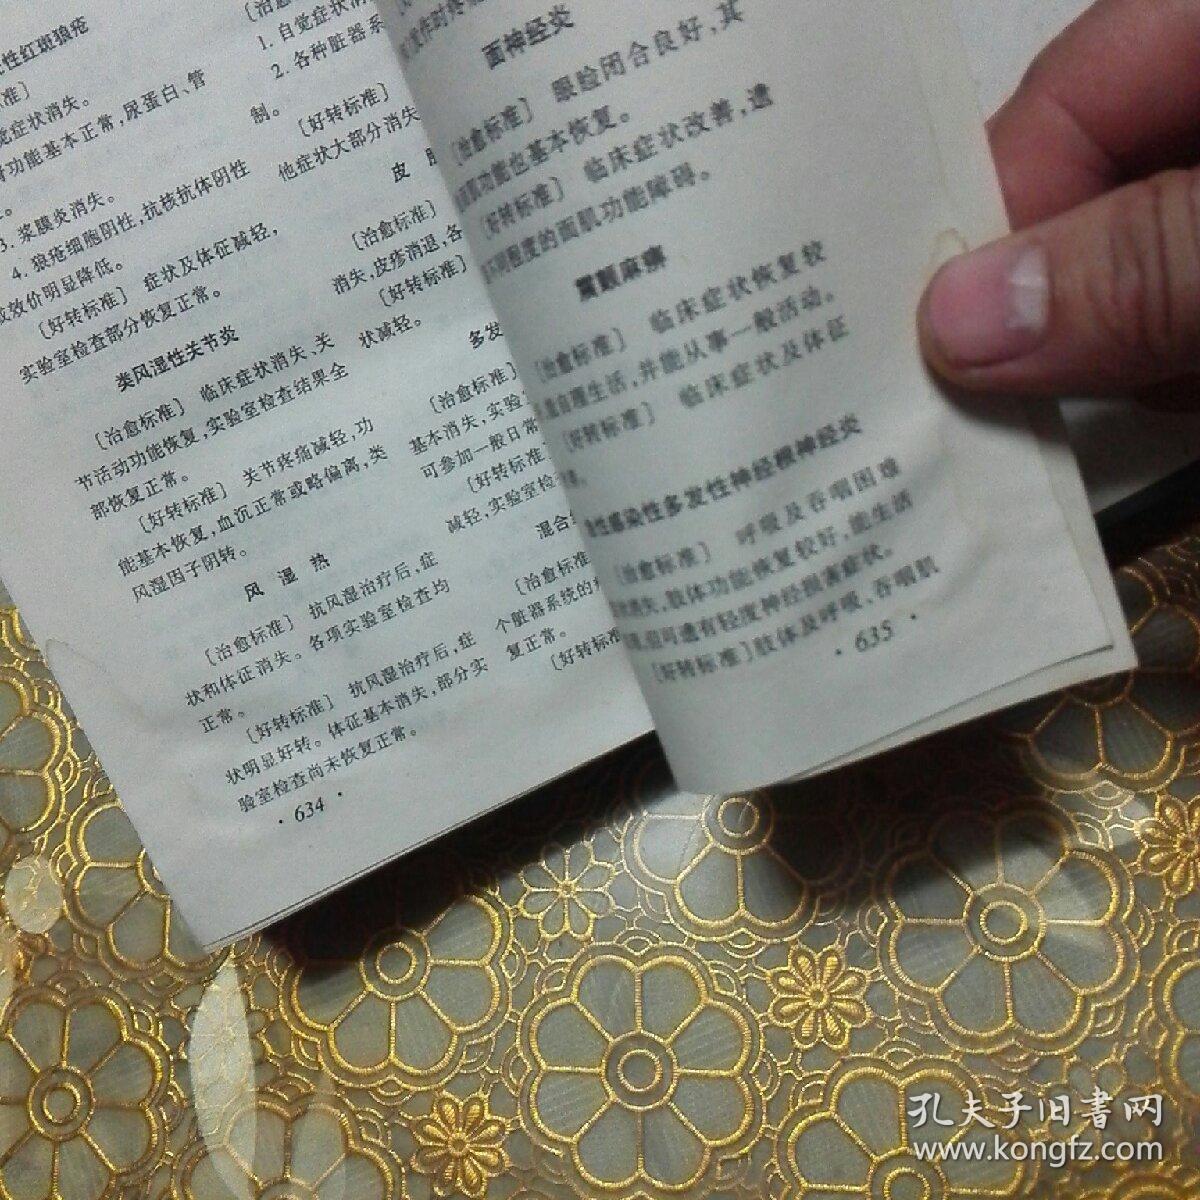 性红斑狼疮
准]
觉症状消失。
肾功能基本正常，尿蛋白、管
3. 浆膜炎消失。
4. 狼疮细胞阴性，抗核抗体阴性
或效价明显降低。
[好转标准] 症状及体征减轻，
实验室检查部分恢复正常。
类风湿性关节炎
[治愈标准] 临床症状消失、关
节活动功能恢复，实验室检查结果全
部恢复正常。
[好转标准] 关节疼痛减轻，功
能基本恢复，血沉正常或略偏离，类
风湿因子阴转。
风 湿 热
[治愈标准] 抗风湿治疗后，症
状和体征消失。各项实验室检查均
正常。
[好转标准] 抗风湿治疗后，症
状明显好转。体征基本消失，部分实
验室检查尚未恢复正常。
· 634 ·
[治愈
1. 自觉症状消
2. 各种脏器系
制。
[好转标准]
他症状大部分消失
皮
[治愈标准]
消失，皮疹消退，各
[好转标准]
状减轻。
多发
[治愈标准]
基本消失，实验
可参加一般日常
[好转标准
减轻，实验室检
混合
[治愈标准
个脏器系统的
复正常。
[好转标
面神经炎
[治愈标准] 眼睑闭合良好，其
面肌功能也基本恢复。
[好转标准] 临床症状改善，遗
不同程度的面肌功能障碍。
震颤麻痹
[治愈标准] 临床症状恢复较
自理生活，并能从事一般活动。
[好转标准] 临床症状及体征
性感染性多发性神经根神经炎
[治愈标准] 呼吸及吞咽困难
消失，肢体功能恢复较好，能生活
但可遗有轻度神经损害症状。
[好转标准] 肢体及呼吸、吞咽肌
· 635 ·
孔夫子旧書网
www.kongfz.com